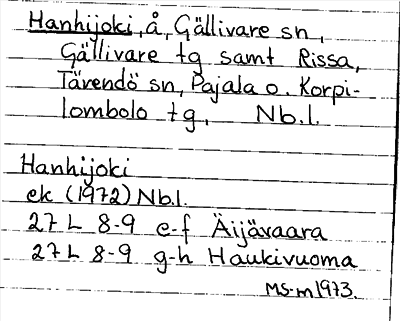 Hanhijoki, å, Gällivare sn,
Gällivare tg samt Rissa,
Tärendö sn, Pajala o. Korpi-
lombolo tg, Nb.l.
Hanhijoki
ek (1972) Nb.l.
27 L 8-9 e-f Äijävaara
27 L 8-9 g-h Haukivuoma
MS-m 1973.